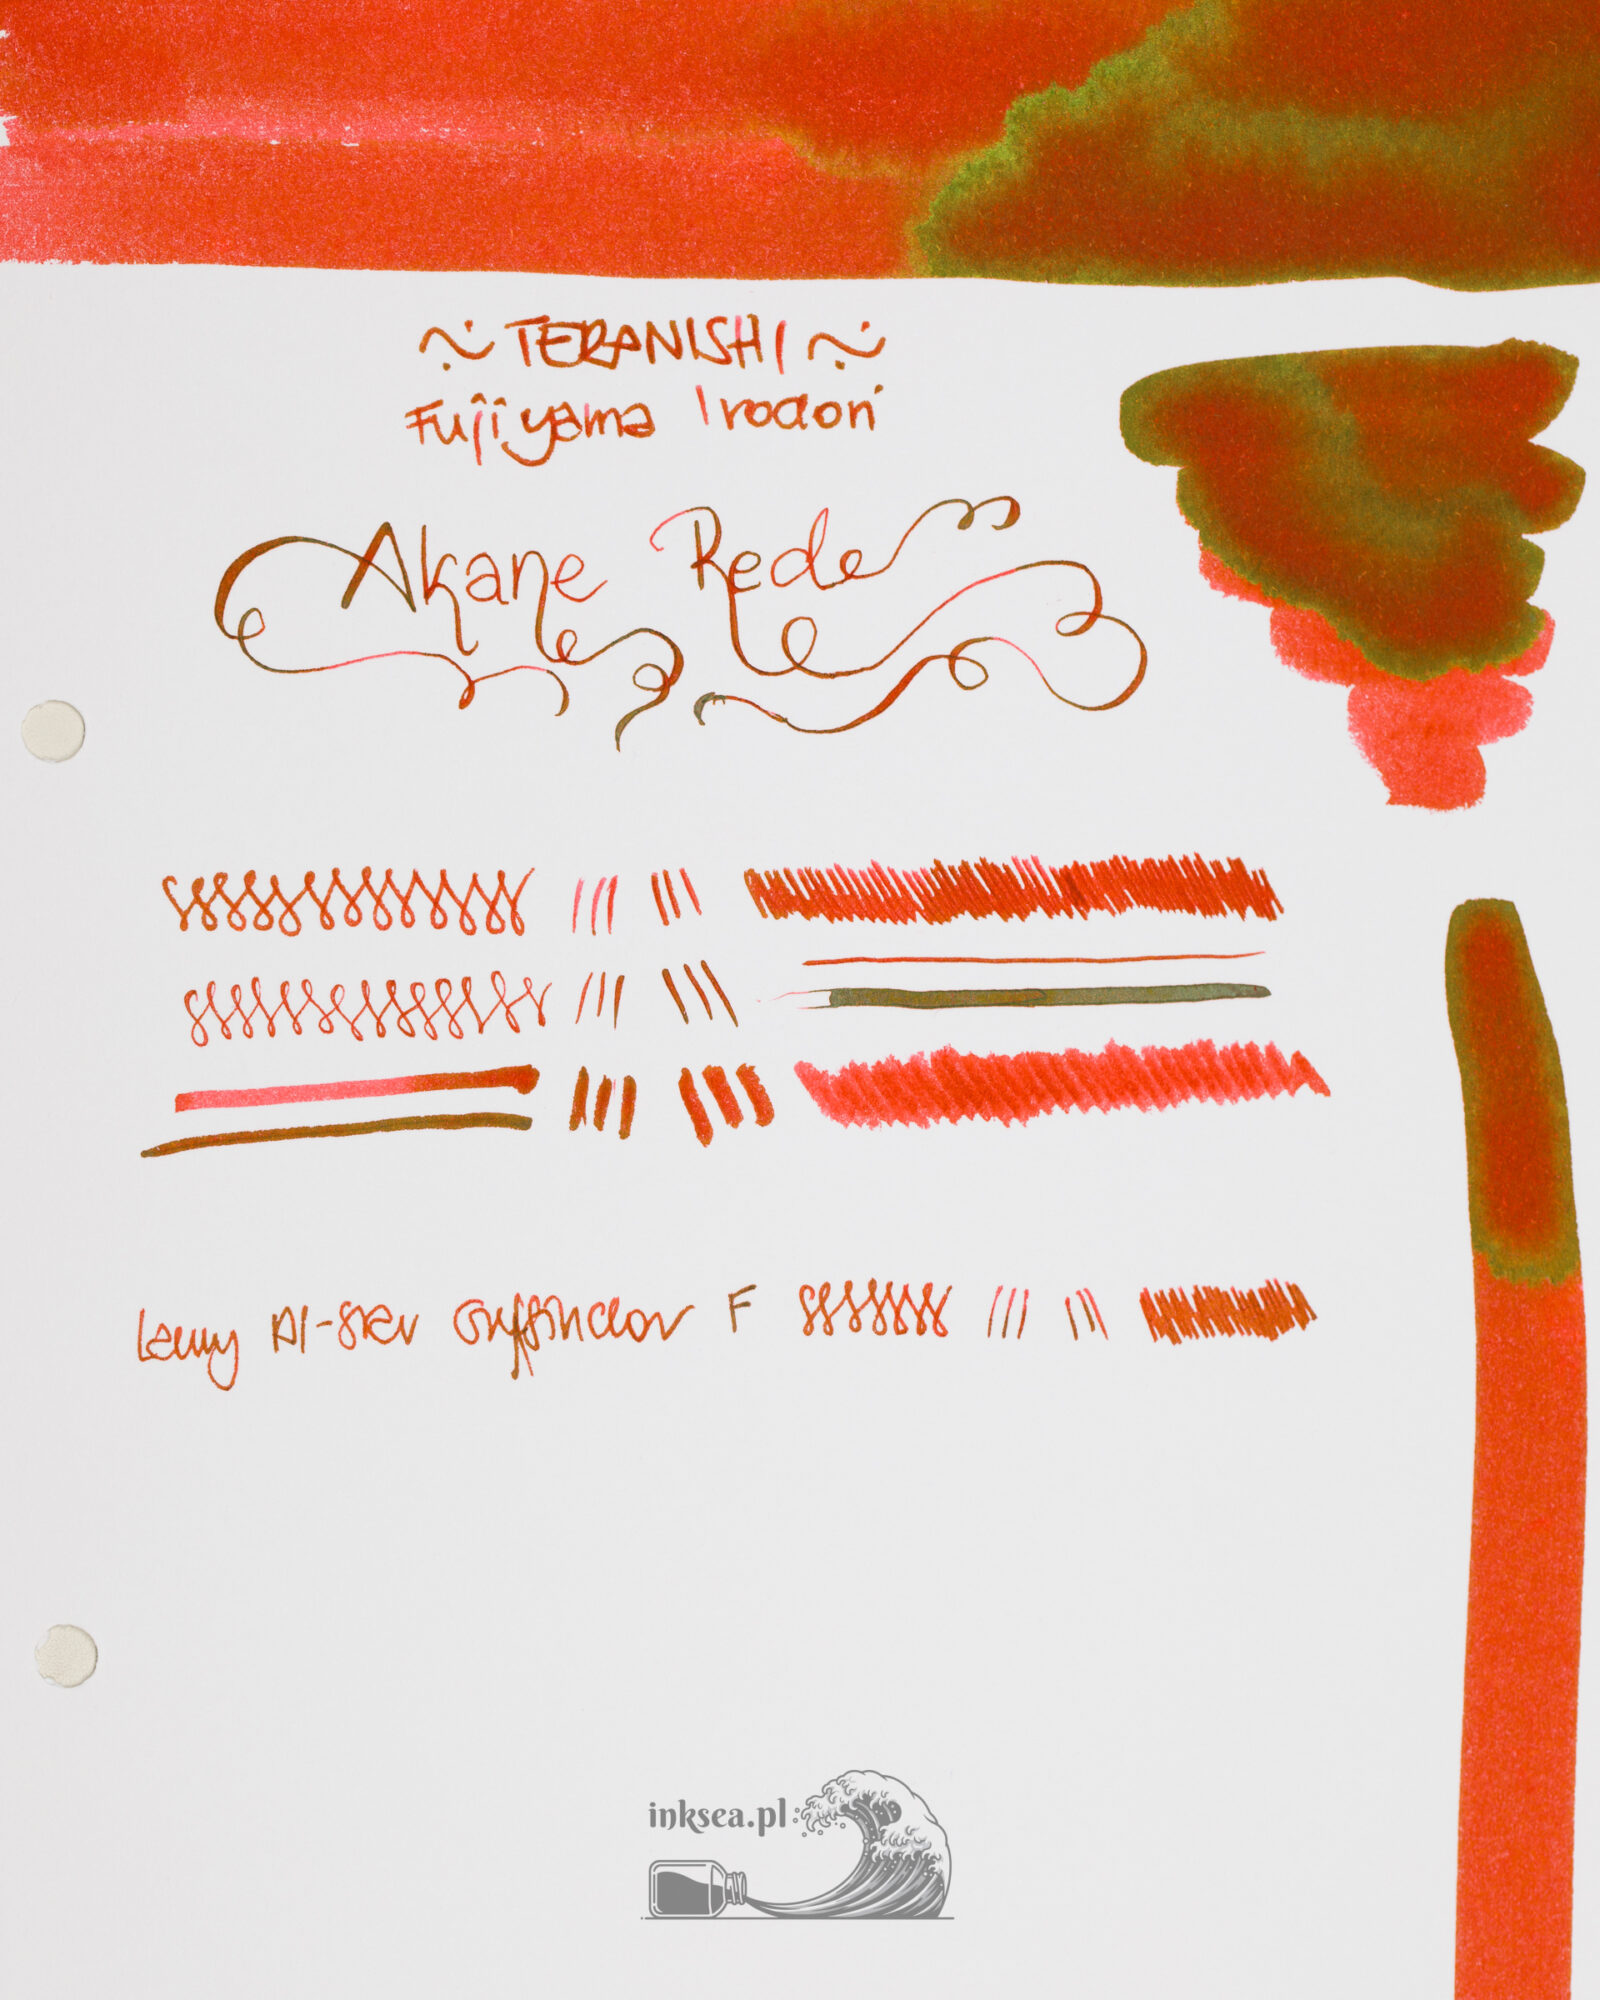 ~ TERANISHI ~
Fujiyama Irodori
Akane Rede
Lamy Al-Star Gryffindor F
inksea.pl